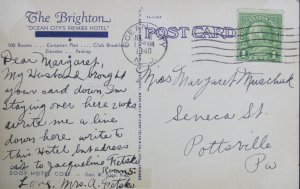 The Brighton
"OCEAN CITY'S PREMIER HOTEL"
100 Rooms .... European Plan .... Club Breakfast
Elevator .... Parking
Dear Margaret,
My Husband brought
your card down Im
staying over here 2 wks
write me a live
down here write to
this Hotel but adress
it to Jacqueline
Love, Mrs. A.
POST CARD
OCEAN CITY
1940
Mrs Margaret
Seneca St.
Pottsville
Pa